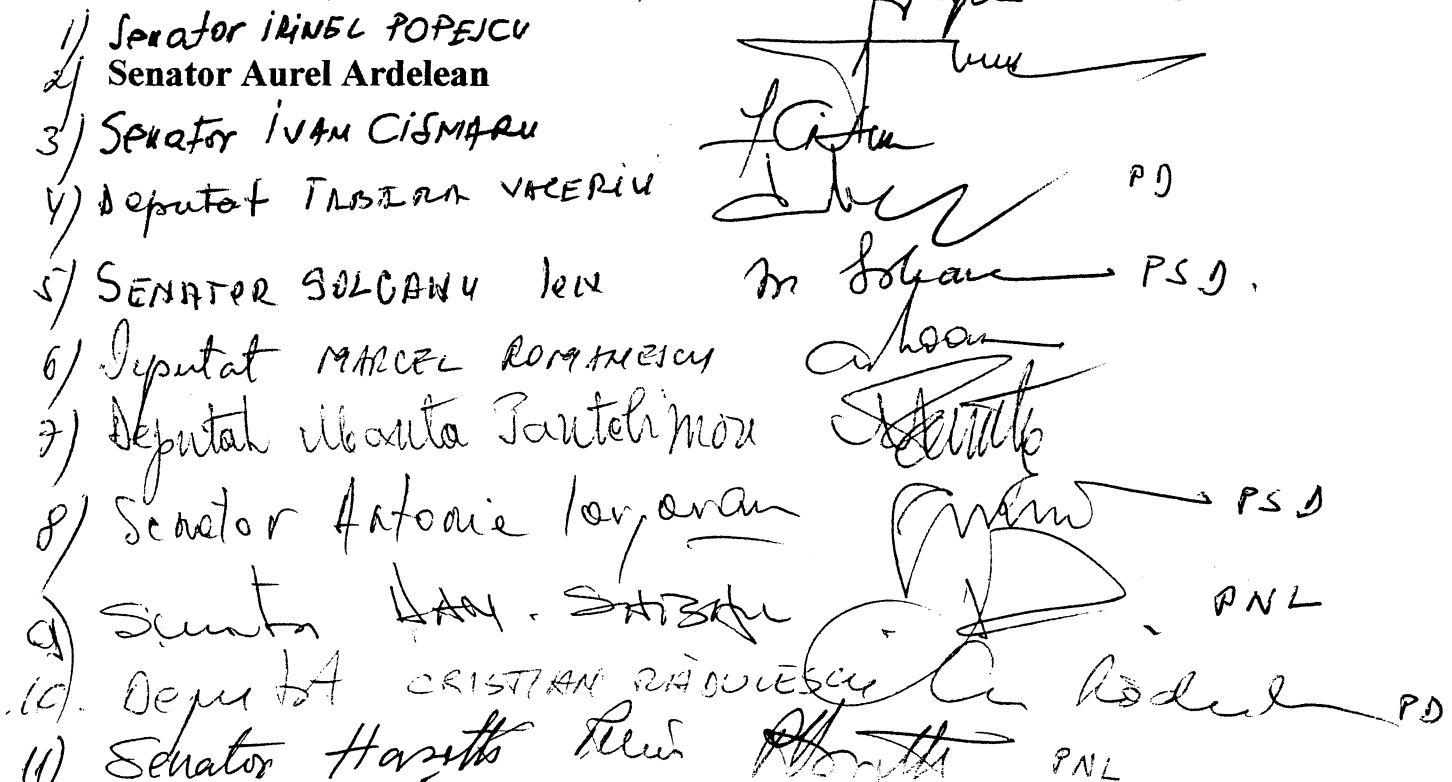 1) Senator IRINEL POPESCU
2) Senator Aurel Ardelean
3) Senator IVAN CISMARU
4) Deputat TABĂRĂ VALERIU PD
5) SENATOR SOLCANU ION PSD.
6) Deputat MARCEL ROMANESCU
7) Deputat Manta Pantelimon
8) Senator Antonie Iorgovan PSD
9) Senator DAN. SABĂU PNL
10). Deputat CRISTIAN RĂDULESCU PD
11) Senator PNL